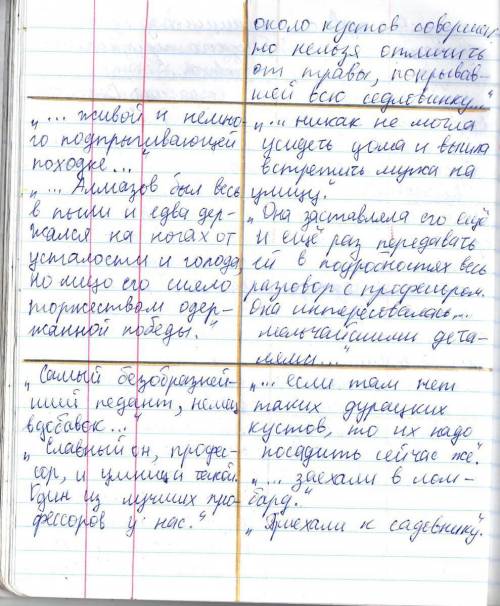 около кустов совершен
но нельзя отличить
от травы, покрывав-
шей всю седловинку..."
„... живой и немно-
го подпрыгивающей
походке..."
„... Алмазов был весь
в пыли и едва дер-
жался на ногах от
усталости и голода,
но лицо его сияло
торжеством одер-
жанной победы."
„... никак не могла
усидеть дома и вышла
встретить мужа на
улицу."
„Она заставлела его ещё
и ещё раз передавать
ей в подробностях весь
разговор с профессором.
Она интересовалась...
мельчайшими дета-
лями..."
„Самый безобразней-
ший педант, немец
вдобавок..."
„Славный он, профес-
сор, и умница такой.
Один из лучших про-
фессоров у нас."
„... если там нет
таких дурацких
кустов, то их надо
посадить сейчас же."
„... заехали в лом-
бард."
„Приехали к садовнику."